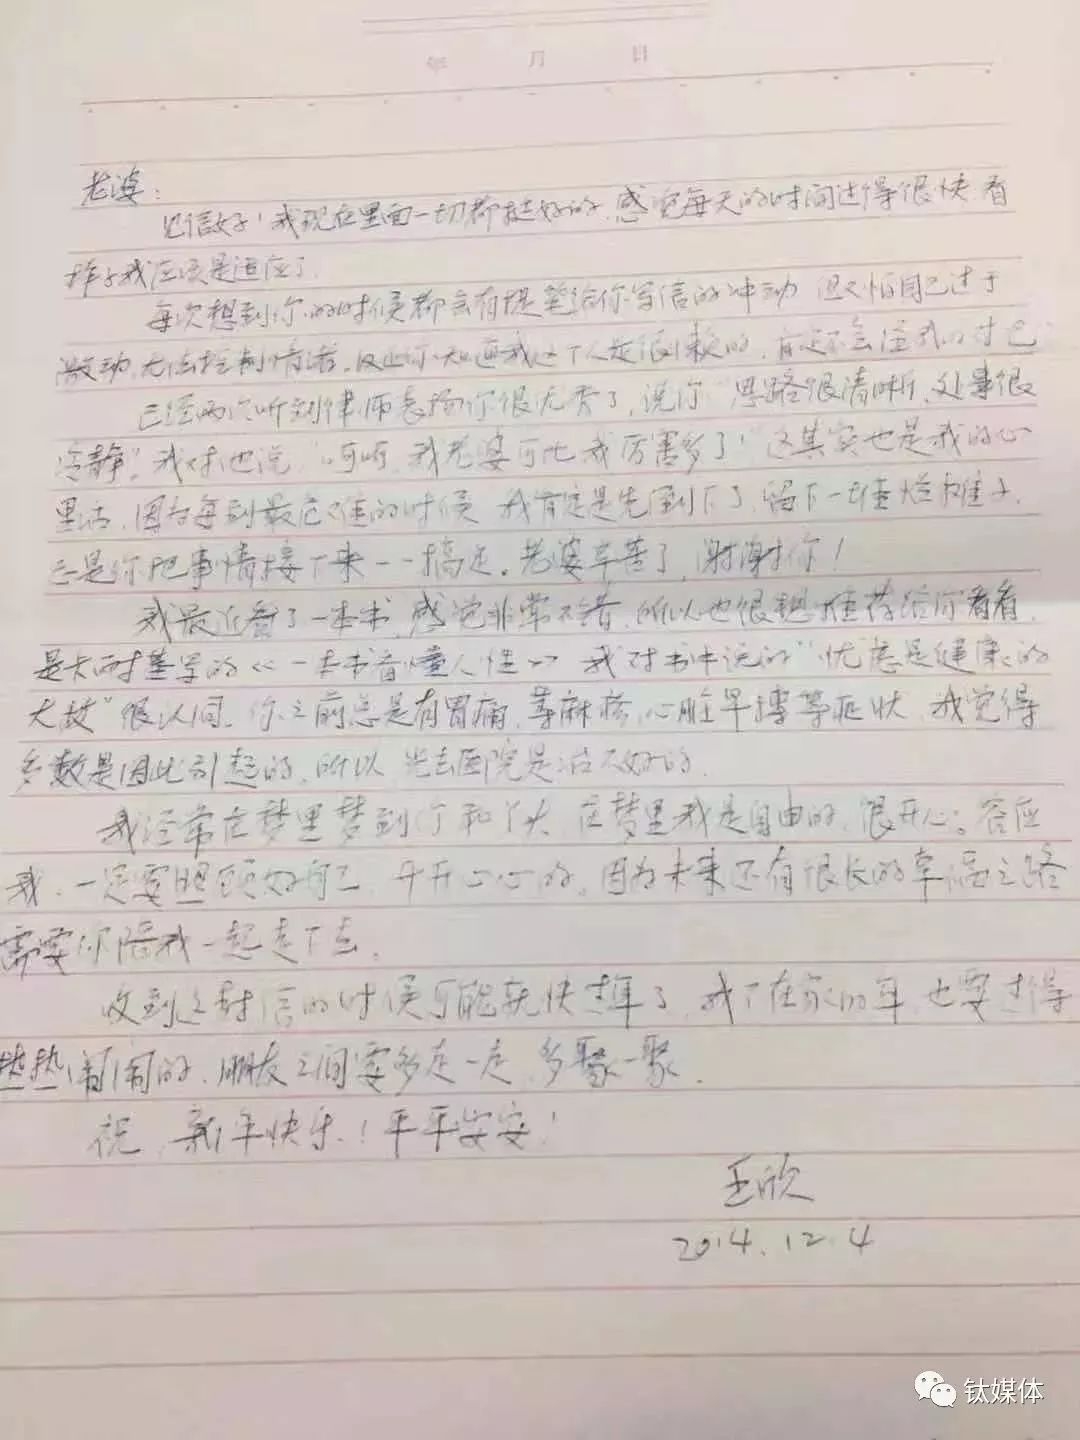 年 月 日
老婆：
见信好！我现在里面一切都挺好的，感觉每天的时间过得很快，看
样子我应该是适应了。
每次想到你的时候都会有提笔给你写信的冲动，但又怕自己过于
激动，无法控制情绪。反正你知道我这个人是很懒的，肯定不会怪我的对吧
已经两次听到律师表扬你很优秀了，说你“思路很清晰，处事很
冷静。”我对他说“呵呵，我老婆可比我厉害多了！”这其实也是我的心
里话，因为每到最危难的时候，我肯定是先倒下了，留下一堆烂摊子，
总是你把事情接下来一一搞定。老婆辛苦了，谢谢你！
我最近看了一本书，感觉非常不错，所以也很想推荐给你看看，
是卡耐基写的《一本书看懂人性》，我对书中说的“忧虑是健康的
大敌”很认同。你之前总是有胃痛，荨麻疹，心脏早搏等症状，我觉得
多数是因此引起的，所以，光去医院是治不好的。
我经常在梦里梦到你和丫头，在梦里我是自由的，很开心。答应
我，一定要照顾好自己，开开心心的，因为未来还有很长的幸福之路
需要你陪我一起走下去。
收到这封信的时候可能就快过年了，我不在家的年，也要过得
热热闹闹的，朋友之间要多走一走，多聚一聚。
祝，新年快乐！平平安安！
王欣
2014.12.4
钛媒体